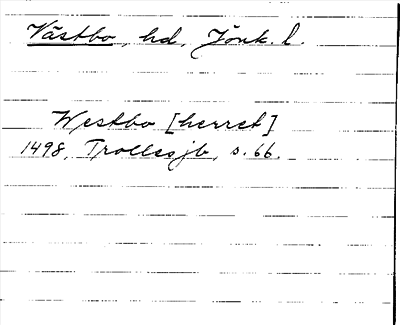 Västbo, hd, Jönk. l.
Westbo [herret]
1498, Trollesjb, s. 66.